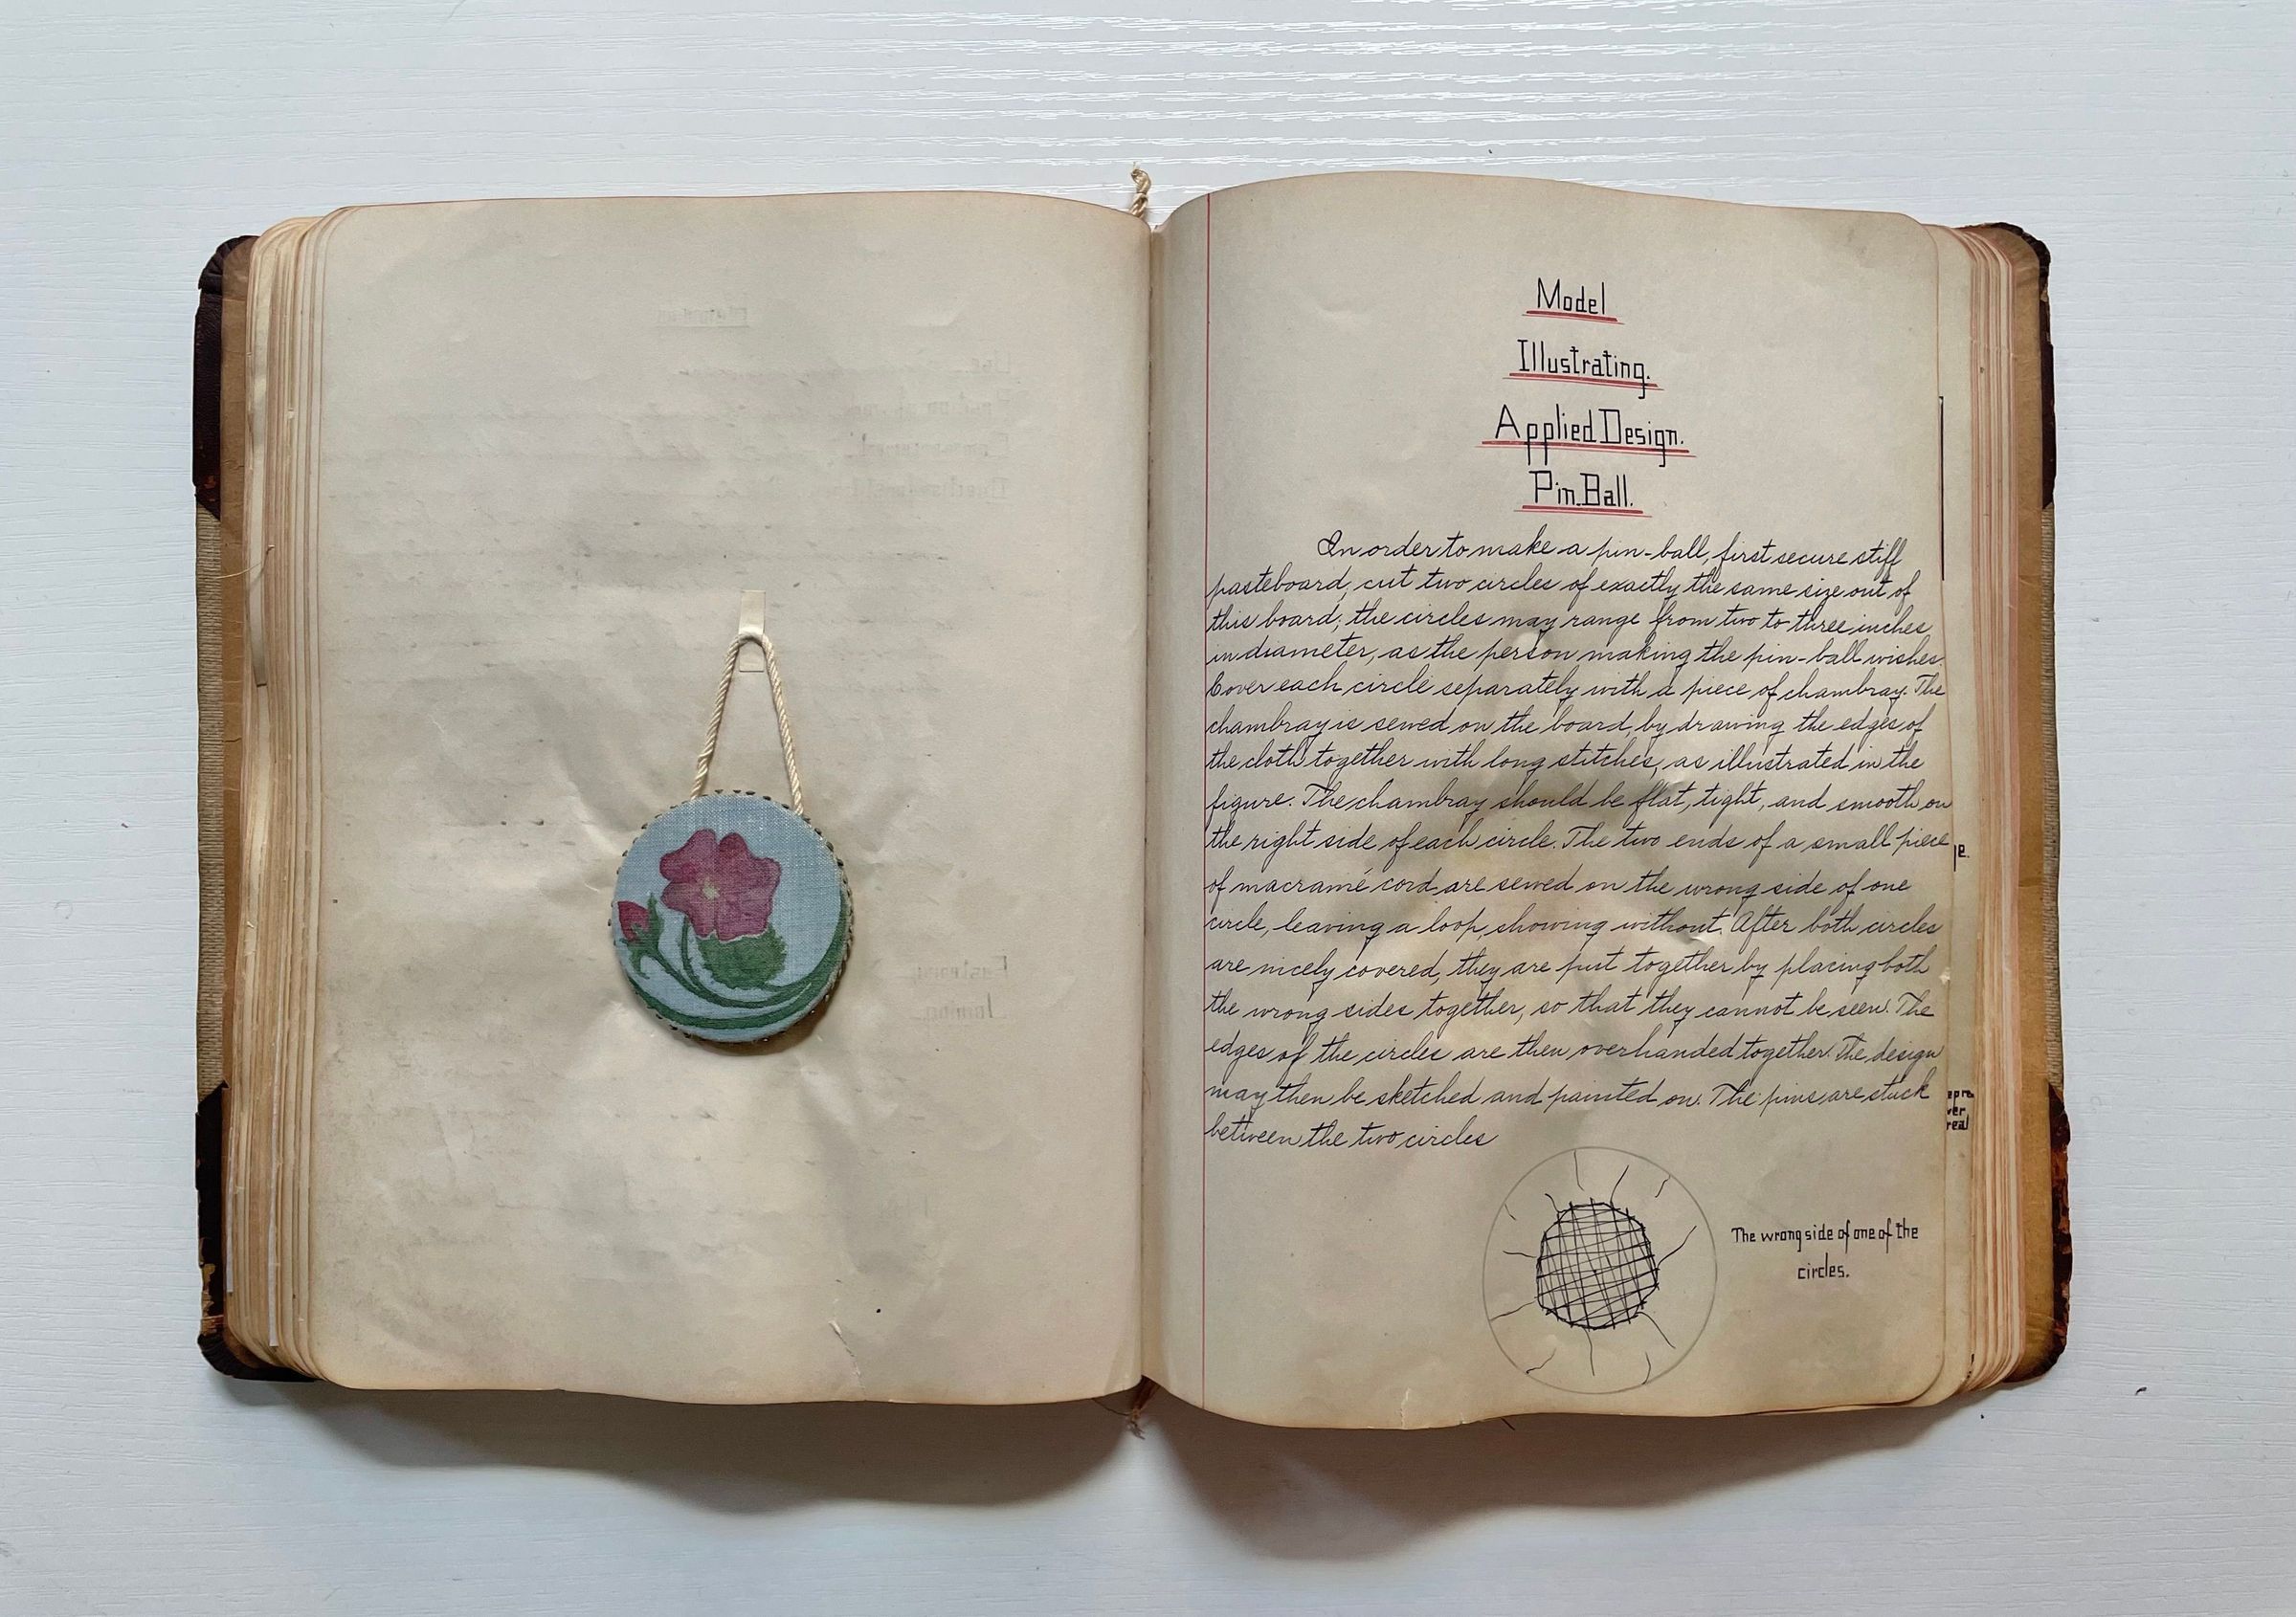 Model
Illustrating.
Applied Design.
Pin Ball.
In order to make a pin-ball, first secure stiff
pasteboard, cut two circles of exactly the same size out of
this board; the circles may range from two to three inches
in diameter, as the person making the pin-ball wishes.
Cover each circle separately with a piece of chambray. The
chambray is sewed on the board, by drawing the edges of
the cloth together with long stitches, as illustrated in the
figure. The chambray should be flat, tight, and smooth on
the right side of each circle. The two ends of a small piece
of macramé cord are sewed on the wrong side of one
circle, leaving a loop, showing without. After both circles
are nicely covered, they are put together by placing both
the wrong sides together, so that they cannot be seen. The
edges of the circles are then overhanded together. The design
may then be sketched and painted on. The pins are stuck
between the two circles
The wrong side of one of the
circles.